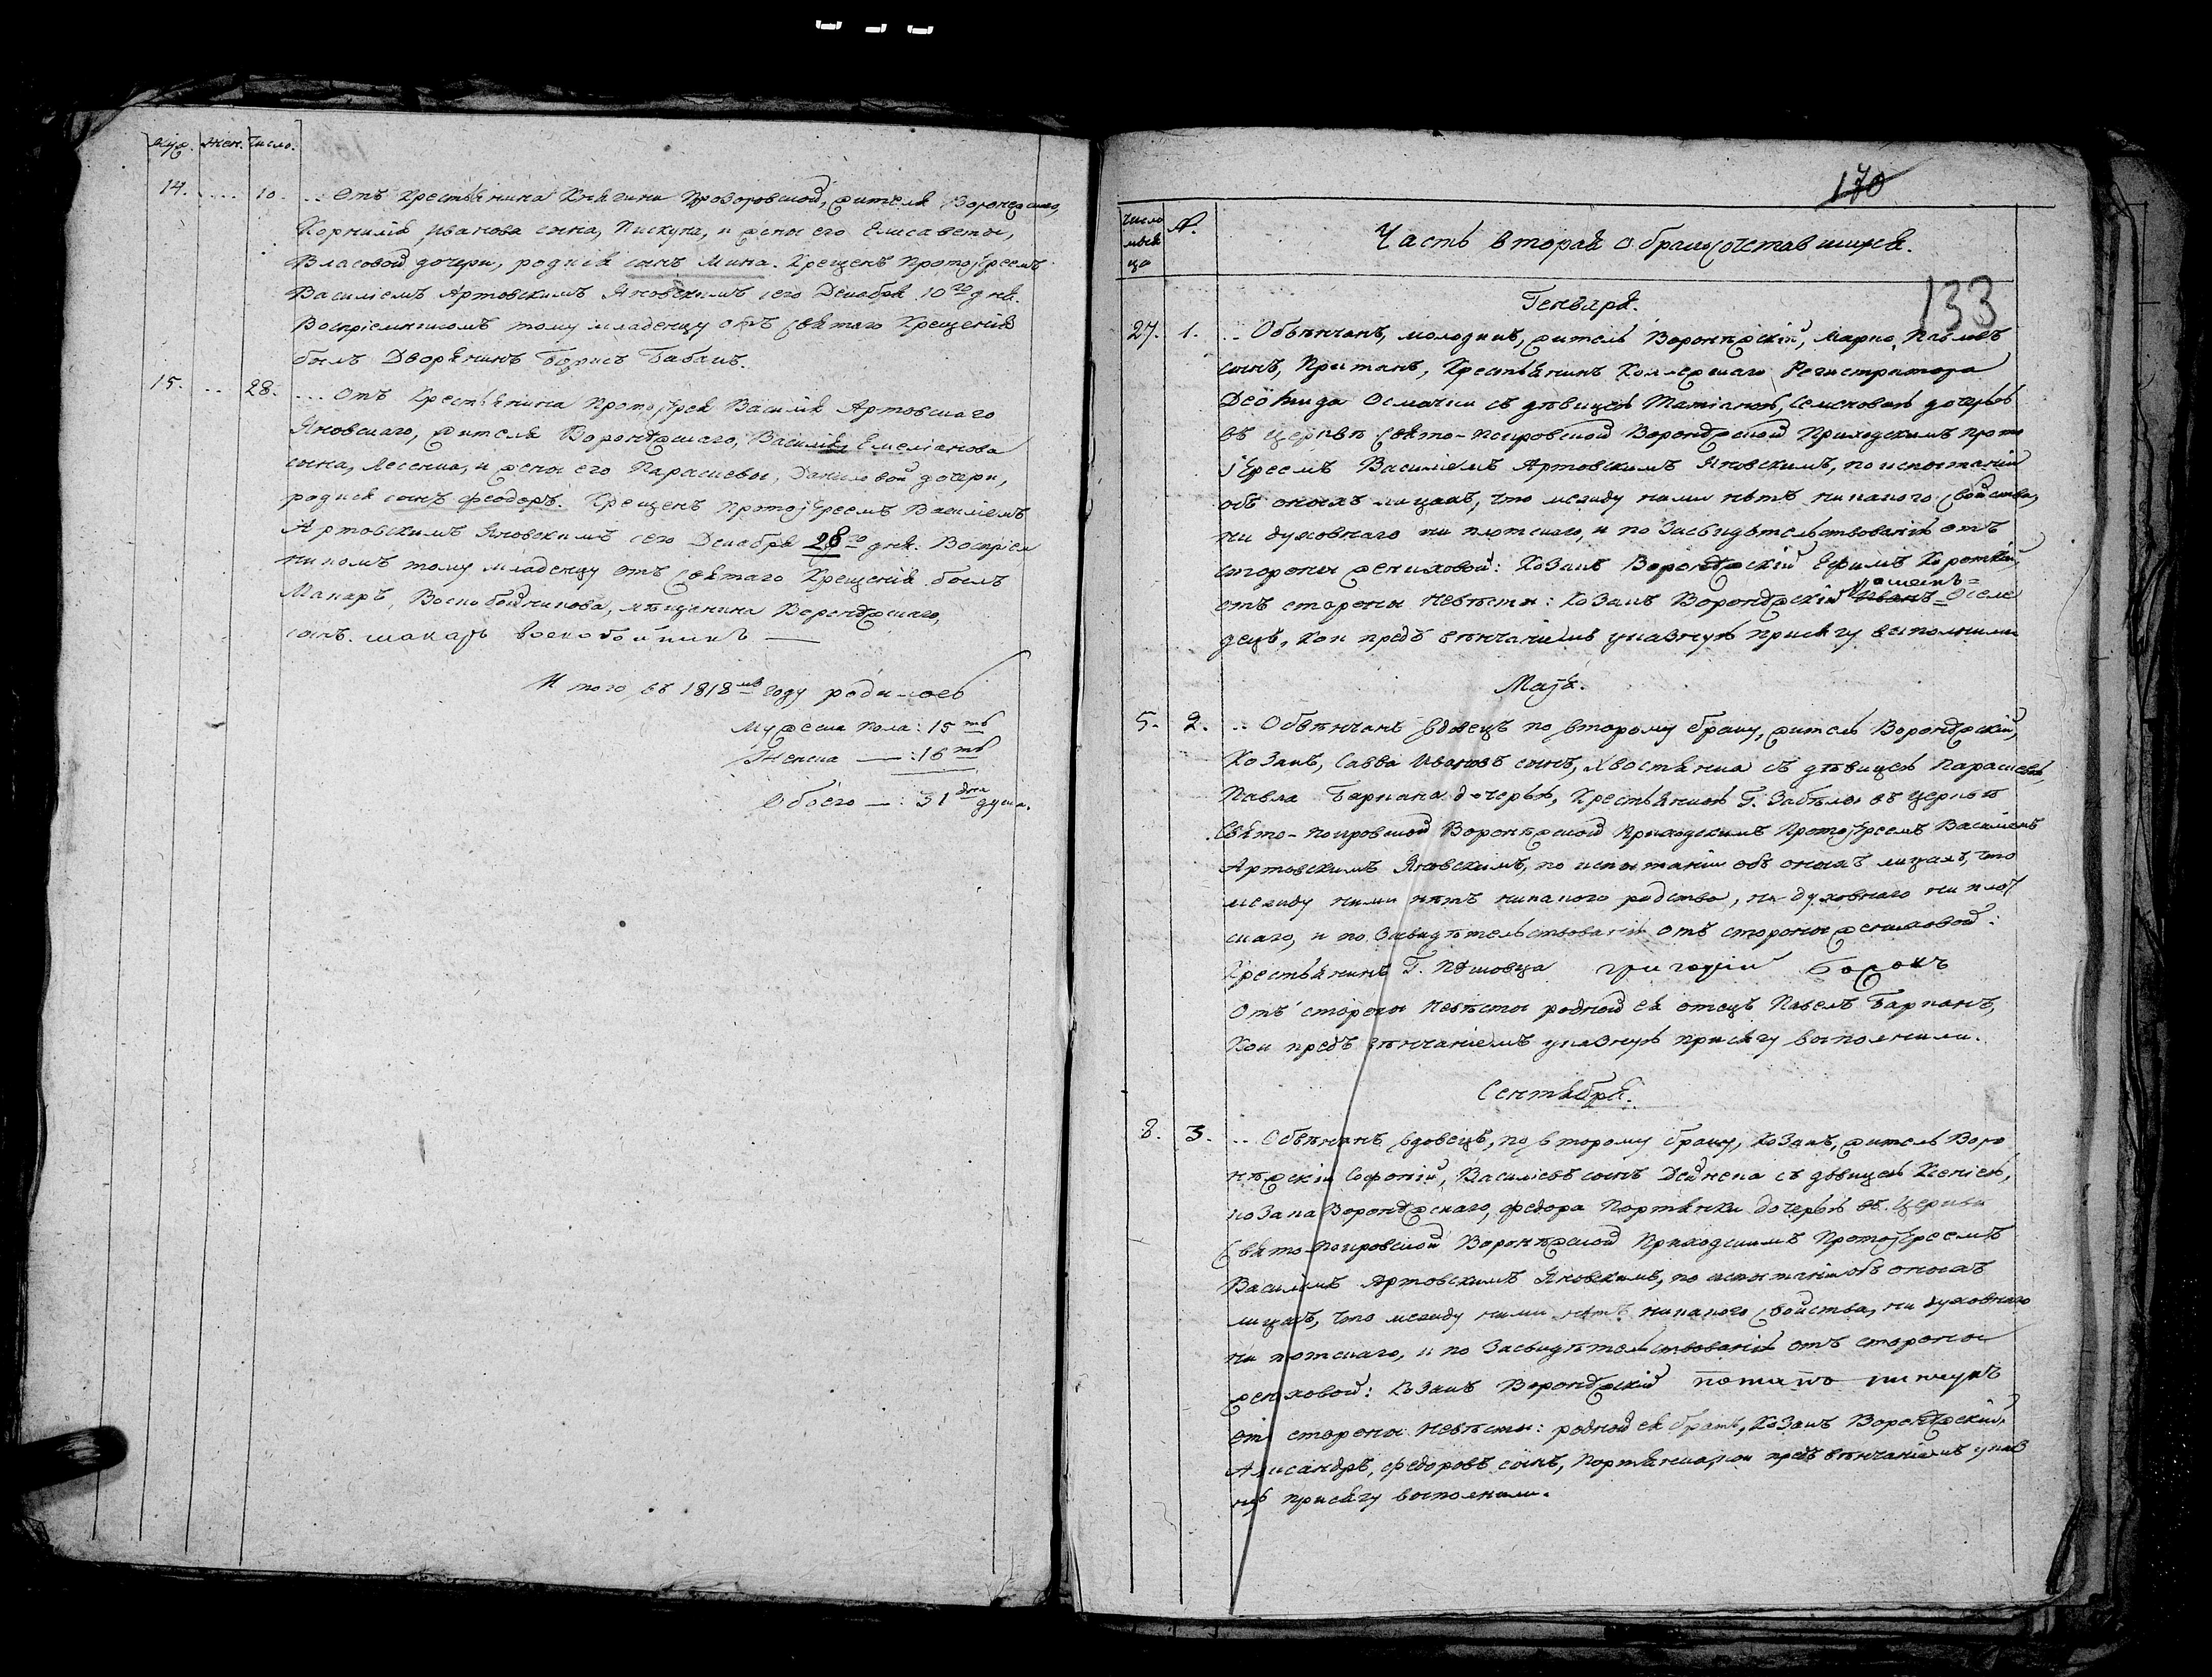 Муж. Жен. Число.
14. .... 10. ... Отъ Крестьянина Княгини Прозоровской, жителя Воронежскаго,
Корнилія Иванова сына, Пискуна, и жены его Елисаветы,
Власовой дочери, родися сынъ Мина. Крещенъ Протоіереемъ
Василіемъ Артовскимъ Яновскимъ сего Декабря 10го дня.
Воспріемникомъ тому младенцу отъ Святаго Крещенія
былъ Дворянинъ Борисъ Бабакъ.
15. ... 28. ... Отъ Крестьянина Протоіерея Василія Артовскаго
Яновскаго, жителя Воронѣжскаго, Василія Емеліанова
сына, Лесенка, и жены его Парасцевы, Даниловой дочери,
родися сынъ Феодоръ. Крещенъ Протоіереемъ Василіемъ
Артовскимъ Яновскимъ сего Декабря 28го дня. Воспріем
никомъ тому младенцу отъ Святаго Крещенія былъ
Макаръ, Воскобойникова, мѣщанина Воронѣжскаго,
сынъ. макаръ воскобойникъ —
Итого, въ 1818мъ году родилось
Мужеска пола: 15ть
Женска — : 16ть
Обоего — : 31дна душа.
170
Число мѣся ца
№.
Часть вторая о бракосочетавшихся.
133
Генваря.
27. 1. .. Обвѣнчанъ, молодикъ, житель Воронѣжскій, Марко, Павловъ
сынъ, Пританъ, Крестьянинъ Коллежскаго Регистратора
Осмачки съ дѣвицею Татіаною, дочерью
въ Церквѣ Свято-Покровской Воронѣжской Приходскимъ Прото
іереемъ Василіемъ Артовскимъ Яновскимъ, по испытаніи
объ оныхъ лицахъ, что между ними нѣтъ никакого свойства,
ни духовнаго ни плотскаго, и по засвидѣтельствованію отъ
стороны жениховой: Козакъ Воронѣжскій Ефимъ Короткій,
отъ стороны невѣсты: Козакъ Воронѣжскій Иванъ Оселе
децъ, кои предъ вѣнчаніемъ указную присягу выполнили
Маія.
5. 2. .. Обвѣнчанъ вдовецъ по второму браку, житель Воронѣжскій,
Козакъ, Савва Ивановъ сынъ, Хвостянка съ дѣвицею Парасцевъ,
Павла Баркана дочерью, Крестьянкою Г. Забѣлы въ Церквѣ
Свято-Покровской Воронѣжской Приходскимъ Протоіереемъ Василіемъ
Артовскимъ Яновскимъ, по испытаніи объ оныхъ лицахъ, что
между ними нѣтъ никакого родства, ни духовнаго ни плот
скаго, и по засвидѣтельствованію отъ стороны жениховой:
Крестьянинъ Г. григорій
Отъ стороны Невѣсты родной ея отецъ Павелъ Барканъ,
Кои предъ вѣнчаніемъ указную присягу выполнили.
Сентября.
8. 3. .. Обвѣнчанъ вдовецъ, по второму браку, Козакъ, житель Воро
нѣжскій Софоній, Василіевъ сынъ Дейнека съ дѣвицею Ксеніею,
козака Воронѣжскаго, Федора Портянки дочерью въ Церкви
Свято-Покровской Воронѣжской Приходскимъ Протоіереемъ
Василіемъ Артовскимъ Яновскимъ, по испытаніи объ оныхъ
лицахъ, что между ними нѣтъ никакого свойства, ни духовнаго
ни плотскаго, и по засвидѣтельствованію отъ стороны
жениховой: Козакъ Воронѣжскій потапъ
отъ стороны Невѣсты: родной ея братъ, Козакъ Воронѣжскій,
Александръ, Федоровъ сынъ, Портянка, кои предъ вѣнчаніемъ указ
ную присягу выполнили.